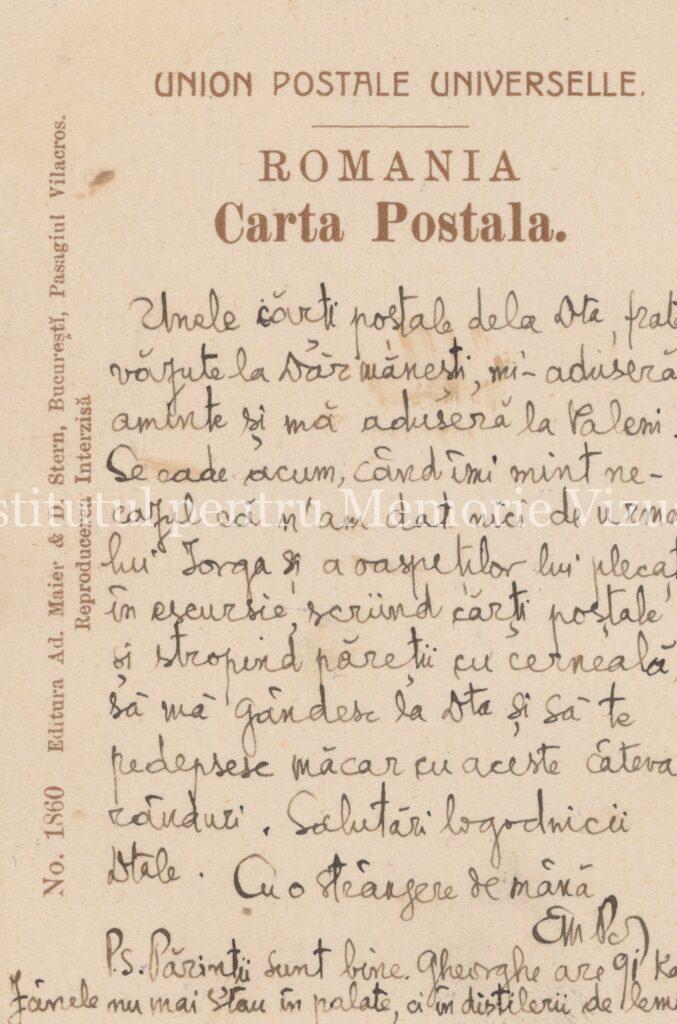 UNION POSTALE UNIVERSELLE.
ROMANIA
Carta Postala.
No. 1860 Editura Ad. Maier & D. Stern, Bucureștĭ, Pasagiul Vilacros.
Reproducerea Interzisă
Unele cărti poștale dela Dta, frate
văzute la Dărmănești, mi-aduseră
aminte și mă aduseră la Valeni.
Se cade acum, când îmi mint ne-
cazul că n'am dat nici de urma
lui Iorga și a oaspeților lui plecaț
în escursie, scriind cărți poștale
și stropind păreții cu cerneală,
să mă gândesc la Dta și să te
pedepsesc măcar cu aceste câteva
rânduri. Salutări logodnicii
Dtale. Cu o strângere de mână
P.S. Părinții sunt bine. Gheorghe are 91
Zânele nu mai stau în palate, ci în distilerii de lem
stitutul pentru Memorie Vizu